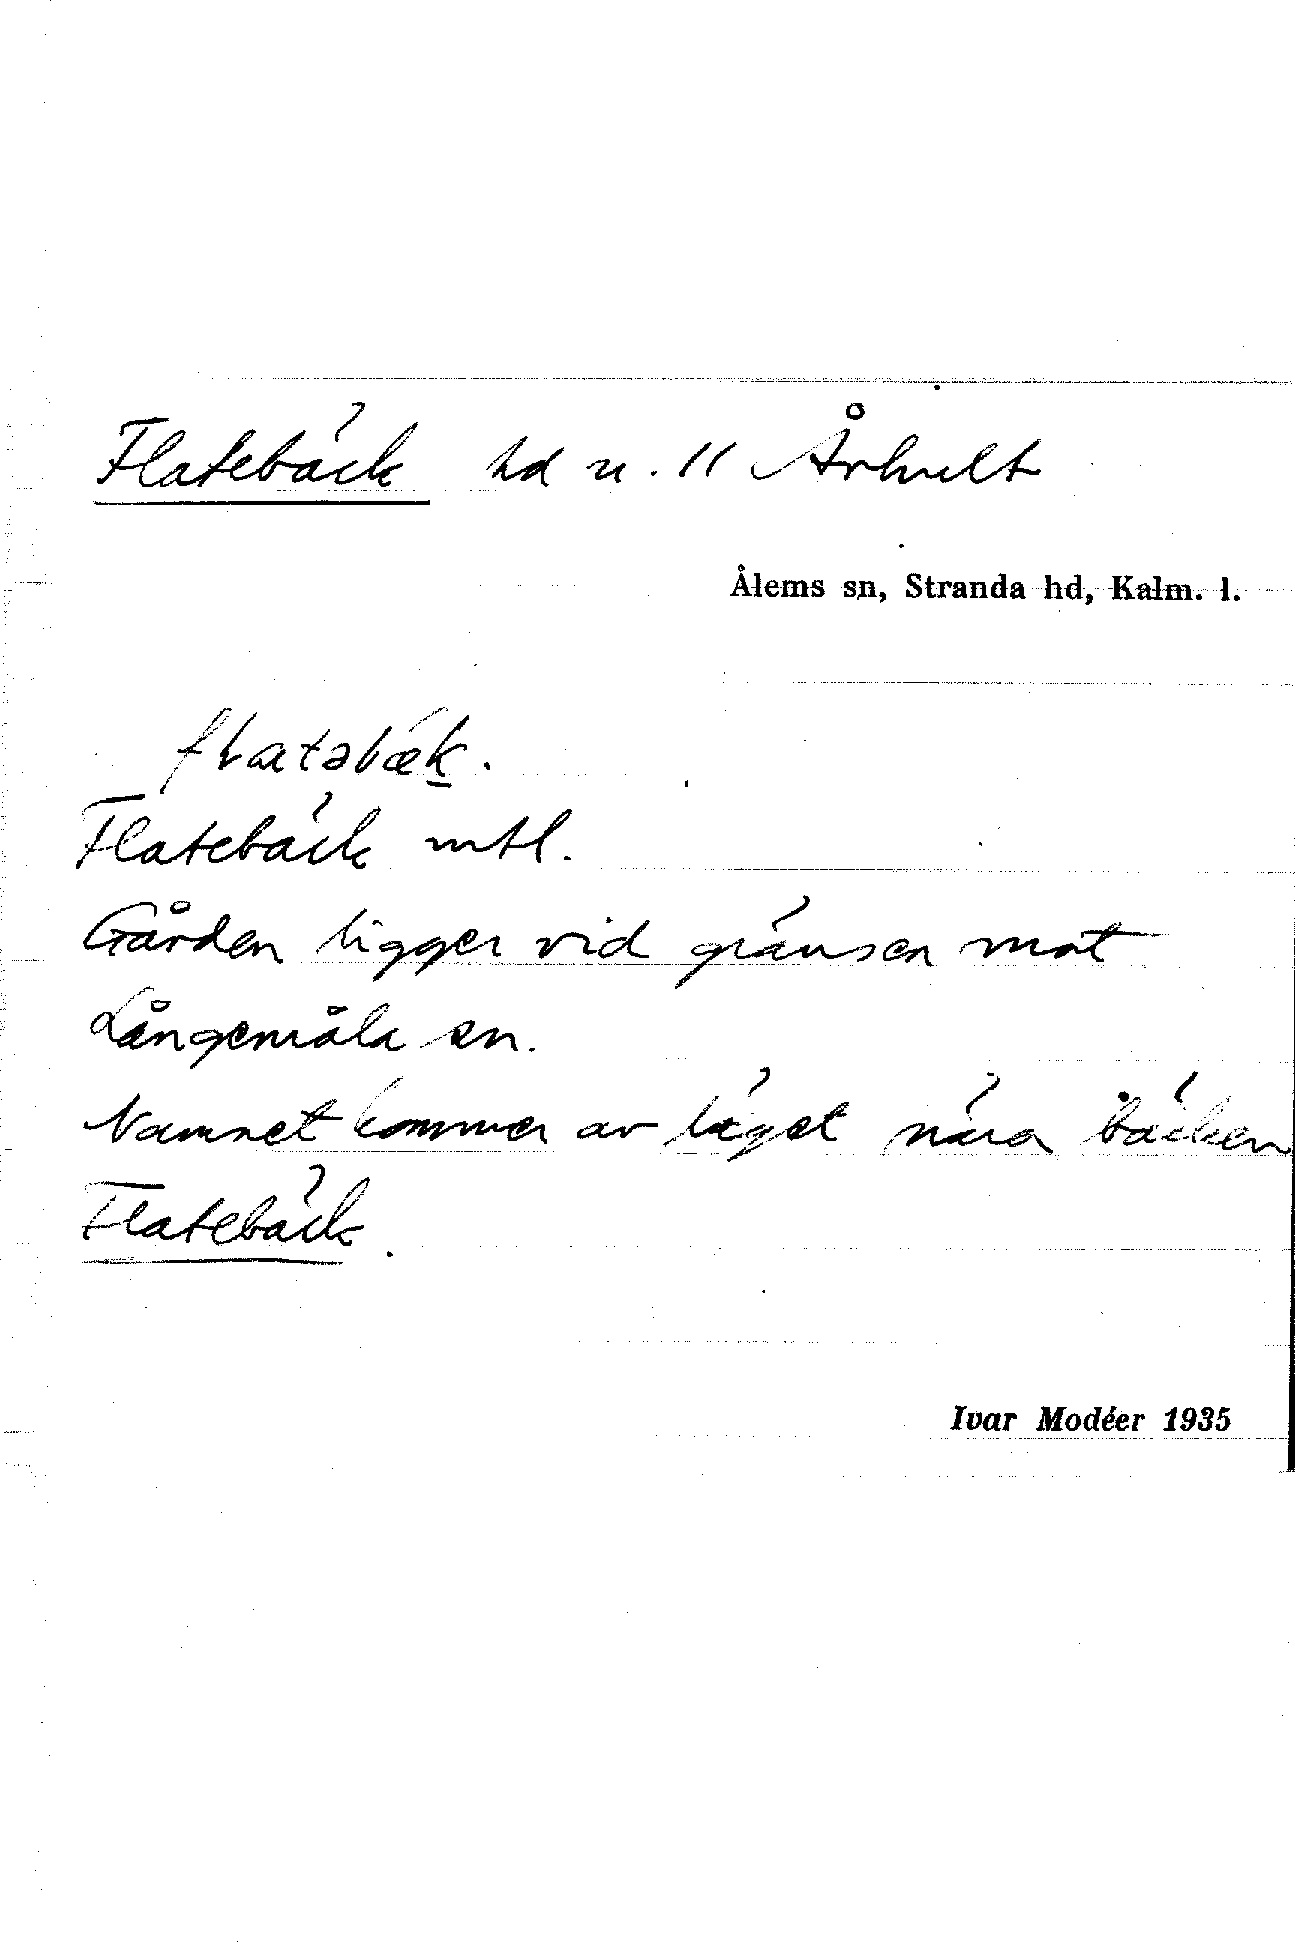 Flatebäck hd u. 11 Århult
Ålems sn, Stranda hd, Kalm. l.
Flatebäck mtl.
Gården ligger vid gränsen mot
Långemåla sn.
Namnet kommer av läget nära bäcken
Flatebäck.
Ivar Modéer 1935